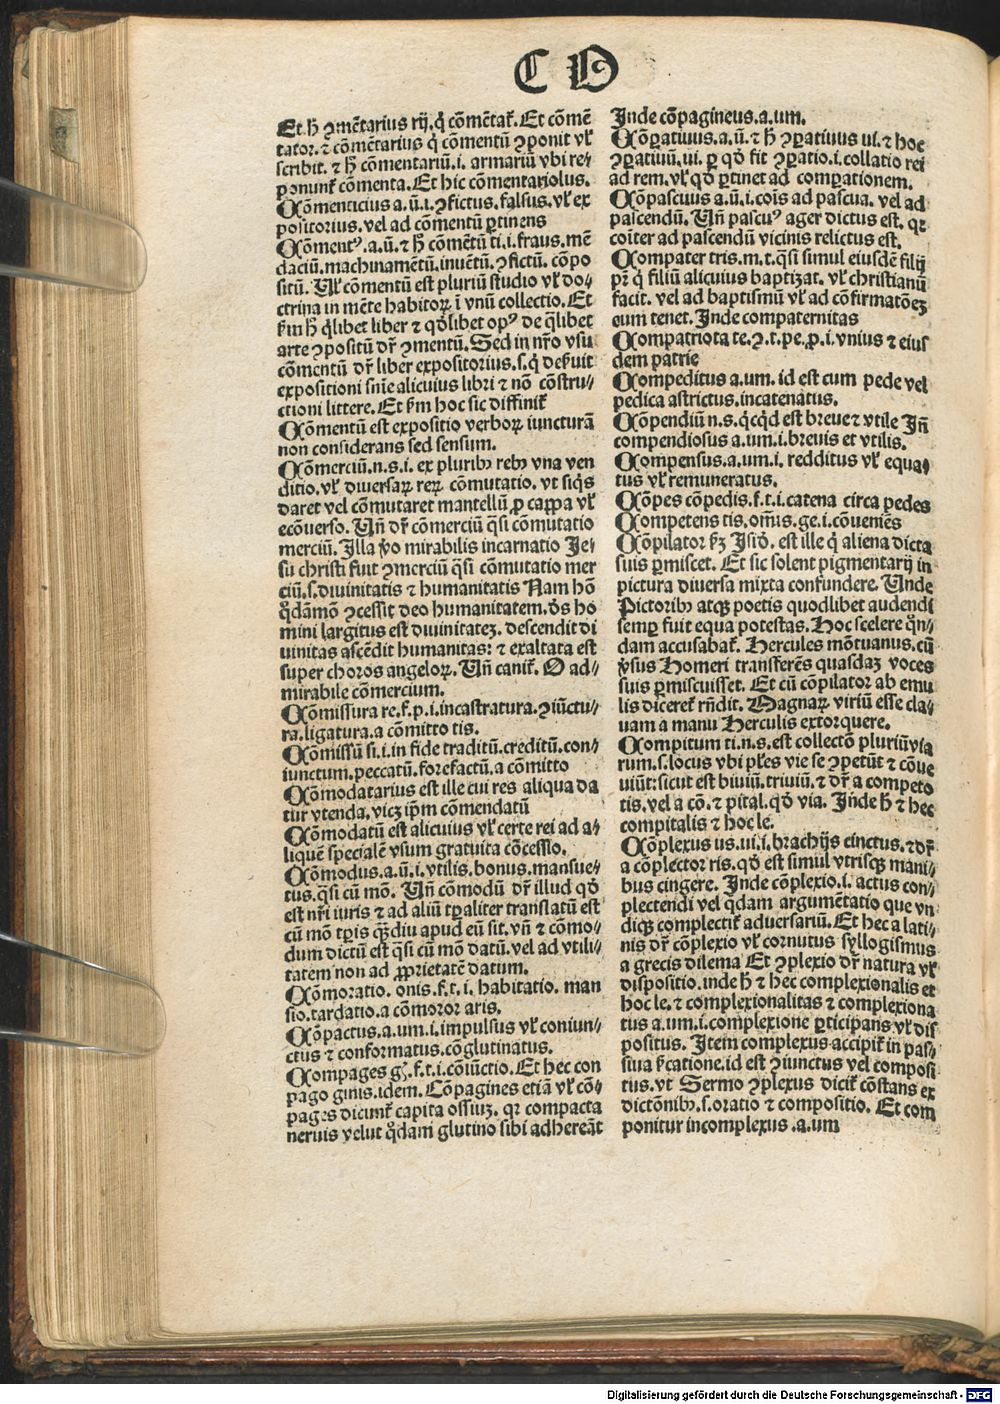 C O
Et h̄ ↄmētarius rij. q̇ cōmētat̄. Et cōmē
tator. ⁊ cōmētarius q̇ cōmentū ↄponit vl̄
scribit. ⁊ h̄ cōmentariū. i. armariū vbi re⸗
ponunt̄ cōmenta. Et hic cōmentariolus.
Cōmenticius a. ū. i. ↄfictus. falsus. vl̄ ex
positorius. vel ad cōmentū ꝑtinens
Cōmentꝰ. a. ū. ⁊ h̄ cōmētū ti. i. fraus. mē
daciū. machinamētū. inuētū. ↄfictū. cōpo
sitū. Vl̄ cōmentū est pluriū studio vl̄ do⸗
ctrina in mēte habitoꝝ ī vnū collectio. Et
ẜm h̄ q̄libet liber ⁊ qd̄libet opꝰ de q̄libet
arte ↄpositū dr̄ ↄmentū. Sed in nr̄o vsu
cōmentū dr̄ liber expositorius. s. q̇ deẜuit
expositioni sn̄ie alicuius libri ⁊ nō cōstru⸗
ctioni littere. Et ẜm hoc sic diffinit̄
Cōmentū est expositio verboꝝ iuncturā
non considerans sed sensum.
Cōmerciū. n. s. i. ex pluribꝫ rebꝫ vna ven
ditio. vl̄ diuersaꝝ reꝝ cōmutatio. vt siq̇s
daret vel cōmutaret mantellū ꝓ cappa vl̄
ecōuerso. Vn̄ dr̄ cōmerciū q̄si cōmutatio
merciū. Illa v̊o mirabilis incarnatio Je⸗
su christi fuit ↄmerciū q̄si cōmutatio mer
ciū. s. diuinitatis ⁊ humanitatis Nam hō
q̊dāmō ↄcessit deo humanitatem. d̄s ho
mini largitus est diuinitatēꝫ. descendit di
uinitas ascēdit humanitas: ⁊ exaltata est
super choros angeloꝝ. Vn̄ canit̄. O ad⸗
mirabile cōmercium.
Cōmissura re. f. p. i. incastratura. ↄiūctu⸗
ra. ligatura. a cōmitto tis.
Cōmissū si. i. in fide traditū. creditū. con⸗
iunctum. peccatū. forefactū. a cōmitto
Cōmodatarius est ille cui res aliqua da
tur vtenda. vicꝫ ip̄m cōmendatū
Cōmodatū est alicuius vl̄ certe rei ad a⸗
liquē specialē vsum gratuita cōcessio.
Cōmodus. a. ū. i. vtilis. bonus. mansue⸗
tus. q̄si cū mō. Vn̄ cōmodū dr̄ illud qd̄
est nr̄i iuris ⁊ ad aliū tꝑaliter translatū est
cū mō tꝑis qꝫdiu apud eū sit. vn̄ ⁊ cōmo⸗
dum dictū est q̄si cū mō datū. vel ad vtili⸗
tatem non ad ꝓprietatē datum.
Cōmoratio. onis. f. t. i. habitatio. man
sio. tardatio. a cōmoror aris.
Cōpactus. a. um. i. impulsus vl̄ coniun⸗
ctus ⁊ conformatus. cōglutinatus.
Compages gꝭ. f. t. i. cōiūctio. Et hec con
pago ginis. idem. Cōpagines etiā vl̄ cō⸗
pages dicunt̄ capita ossiuꝫ. qꝛ compacta
neruis velut q̊dam glutino sibi adhereāt
Inde cōpagineus. a. um.
Cōꝑatiuus. a. ū. ⁊ h̄ ↄꝑatiuus ui. ⁊ hoc
ↄꝑatiuū. ui. ꝑ qd̄ fit ↄꝑatio. i. collatio rei
ad rem. vl̄ qd̄ ꝑtinet ad comꝑationem.
Cōpascuus a. ū. i. cōis ad pascua. vel ad
pascendū. Vn̄ pascuꝰ ager dictus est. qꝛ
coīter ad pascendū vicinis relictus est.
Compater tris. m. t. q̄si simul eiusdē filij
pr̄ q̇ filiū alicuius baptizat. vl̄ christianū
facit. vel ad baptismū vl̄ ad cōfirmatōeꝫ
eum tenet. Inde compaternitas
Compatriota te. ↄ. t. pe. ꝓ. i. vnius ⁊ eius
dem patrie
Compeditus a. um. id est cum pede vel
pedica astrictus. incatenatus.
Cōpendiū n. s. q̇cq̇d est breue ⁊ vtile Jn̄
compendiosus a. um. i. breuis et vtilis.
Compensus. a. um. i. redditus vl̄ equa⸗
tus vl̄ remuneratus.
Cōpes cōpedis. f. t. i. catena circa pedes
Competens tis. om̄s. ge. i. cōueniēs
Cōpilator ẜꝫ Isid̄. est ille q̇ aliena dicta
suis ꝑmiscet. Et sic solent pigmentarij in
pictura diuersa mixta confundere. Vnde
Pictoribꝫ atqꝫ poetis quodlibet audendi
semꝑ fuit equa potestas. Hoc scelere q̄n⸗
dam accusabat̄. Hercules mōtuanus. cū
v̓sus Homeri transferēs quasdaꝫ voces
suis ꝑmiscuisset. Et cū cōpilator ab emu
lis diceret̄ rn̄dit. Magnaꝝ viriū esse cla⸗
uam a manu Herculis extorquere.
Compitum ti. n. s. est collectō pluriū via
rum. s. locus vbi pl̄es vie se ↄpetūt ⁊ cōue
uiūt: sicut est biuiū. triuiū. ⁊ dr̄ a competo
tis. vel a cō. ⁊ pital. qd̄ via. Inde h̄ ⁊ hec
compitalis ⁊ hoc le.
Cōplexus us. ui. i. brachijs cinctus. ⁊ dr̄
a cōplector ris. qd̄ est simul vtrisqꝫ mani⸗
bus cingere. Inde cōplexio. i. actus con⸗
plectendi vel q̄dam argumētatio que vn
diqꝫ complectit̄ aduersariū. Et hec a lati⸗
nis dr̄ cōplexio vl̄ cornutus syllogismus
a grecis dilema Et ↄplexio dr̄ natura vl̄
dispositio. inde h̄ ⁊ hec complexionalis et
hoc le. ⁊ complexionalitas ⁊ complexiona
tus a. um. i. complexione ꝑticipans. vl̄ dis
positus. Item complexus accipit̄ in pas⸗
siua ẜcatione. id est ↄiunctus vel composi
tus. vt Sermo ↄplexus dicit̄ cōstans ex
dictōnibꝫ. s. oratio ⁊ compositio. Et com
ponitur incomplexus. a. um
Digitalisierung gefördert durch die Deutsche Forschungsgemeinschaft - DFG